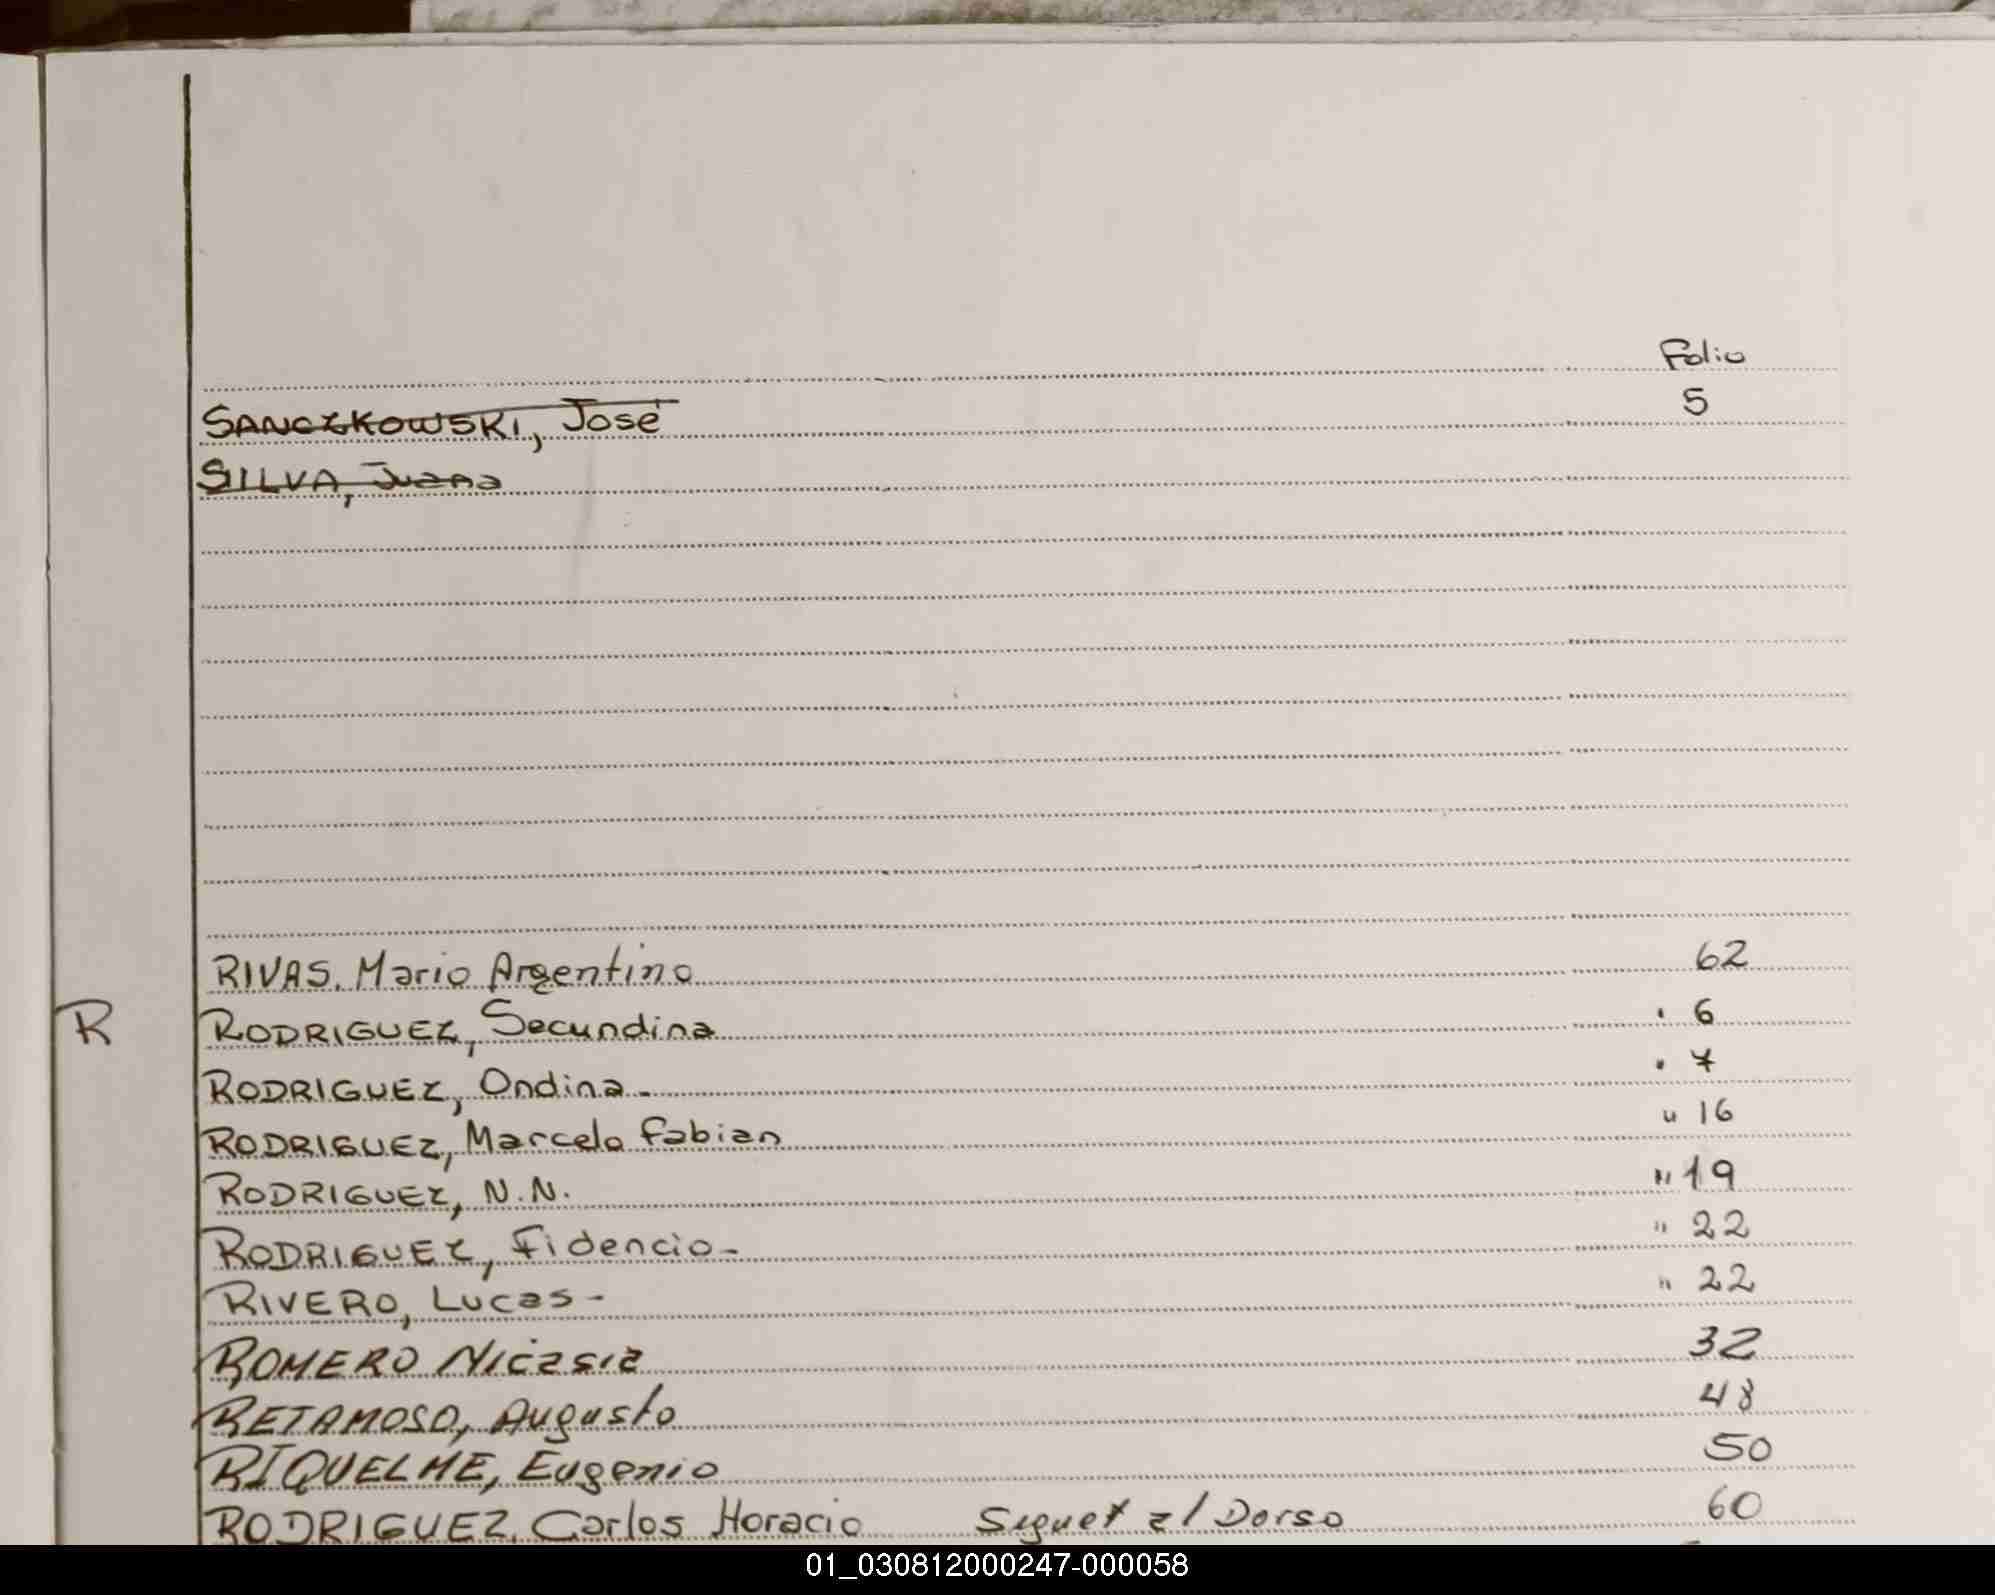 Folio
SANCZKOWSKI, José 5
SILVA, Juana
RIVAS. Mario Argentino 62
R RODRIGUEZ, Secundina " 6
RODRIGUEZ, Ondina - " 7
RODRIGUEZ, Marcelo Fabian " 16
RODRIGUEZ, N.N. " 19
RODRIGUEZ, Fidencio - " 22
RIVERO, Lucas - " 22
ROMERO Nicasia 32
RETAMOSO, Augusto 48
RIQUELME, Eugenio 50
RODRIGUEZ, Carlos Horacio al Dorso 60
01_030812000247-000058